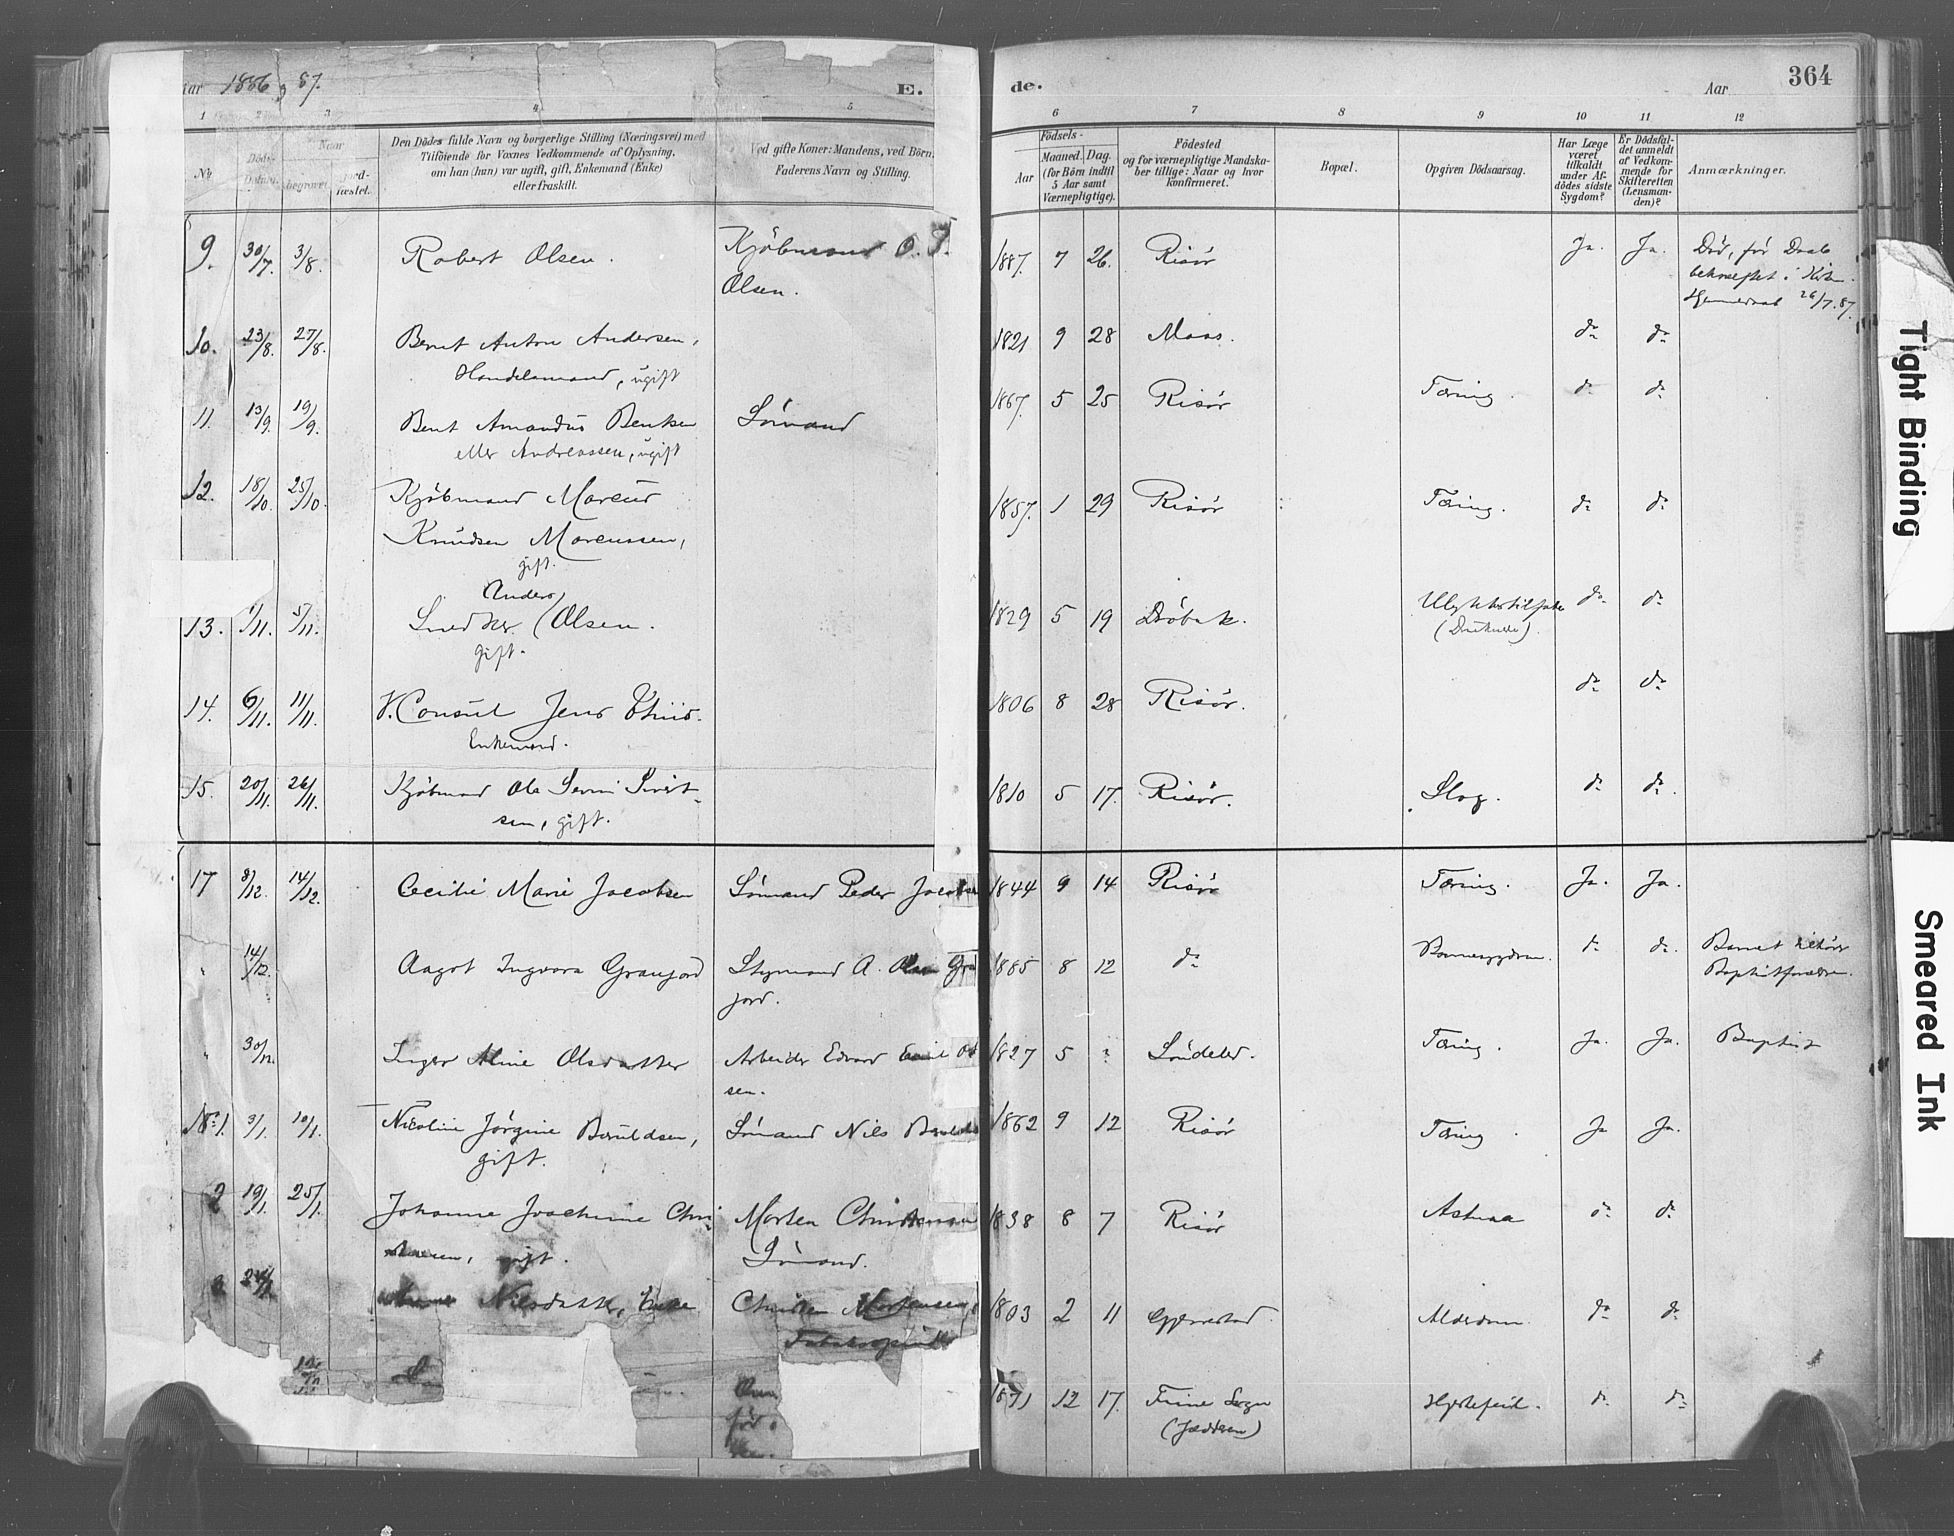 Aar 1886, 87.
E.
de.
Aar
364
1 2 3 4 5 6 7 8 9 10 11 12
Nr.
Døds-
Datum.
Naar
begravet.
jord-
fæstet.
Den Dødes fulde Navn og borgerlige Stilling (Næringsvei) med
Tilføiende for Voxnes Vedkommende af Oplysning,
om han (hun) var ugift, gift, Enkemand (Enke)
eller fraskilt.
Ved gifte Koner: Mandens, ved Børn:
Faderens Navn og Stilling.
Fødsels-
Aar
Maaned. Dag.
(for Børn indtil
5 Aar samt
Værnepligtige).
Fødested
og for værnepligtige Mandska-
ber tillige: Naar og hvor
konfirmeret.
Bopæl.
Opgiven Dødsaarsag.
Har Læge
været
tilkaldt
under Af-
dødes sidste
Sygdom?
Er Dødsfal-
det anmeldt
af Vedkom-
mende for
Skifteretten
(Lensman-
den)?
Anmærkninger.
9. 30/7. 3/8. Robert Olsen. Kjøbmand O. J. 1887. 7 26. Risør Ja. Ja. Død, før Daab
Olsen. bekræftet i Kirken.
Hjemmedaab 26/7.87.
10. 23/8. 27/8. Bernt Anton Andersen, 1821 9 28 Moss. do do
Handelsmand, ugift
11. 13/9. 19/9. Bent Amandus Bentsen Sømand 1867. 5 25 Risør Tæring. do do
eller Andreassen, ugift
12. 18/10. 25/10. Kjøbmand Marcus 1857. 1 29 Risør Tæring. do do
Knudsen Marcussen,
gift.
Anders
13. 1/11. 5/11. Snedker Olsen. 1829 5 19 Drøbak. Ulykkestilfælde do do
gift. (Druknede).
14. 6/11. 11/11. V. Consul Jens Thiis. 1806 8 28 Risør. do do
Enkemand.
15. 20/11. 26/11. Kjøbmand Ole Sivert- 1810 5 17. Risør. Slag. do do
sen, gift.
17 8/12. 14/12. Cecilie Marie Jacobsen Sømand Peder Jacobsen 1844 9 14 Risør Tæring. Ja. Ja.
" 14/12. Aagot Ingvora Granjord Styrmand A. Olsen Gran 1885 8 12 do do do Barnet tilhører
jord. Baptistforældre.
" 30/12. Inger Aline Olsdatter Arbeider Edvard Emil Ol 1827 5 ? Søndeled. Tæring. Ja. Ja. Baptist
sen.
No 1. 3/1. 10/1. Nicoline Jørgine Beruldsen, Sømand Nils Beruldsen 1862 9 12 Risør Tæring. Ja Ja.
gift.
2 19/1. 25/1. Johanne Joachime Chri- Morten Christensen 1838 8 7 Risør Astma do do
stensen, gift. Sømand.
3 Nilsdatter, Enke Christen Mortensen, 1803 2 11 Gjerrestad. Alderdom. do do
1871 12 17. Time Sogn Hjertefeil. do do
(Jædderen)
Tight Binding
Smeared Ink